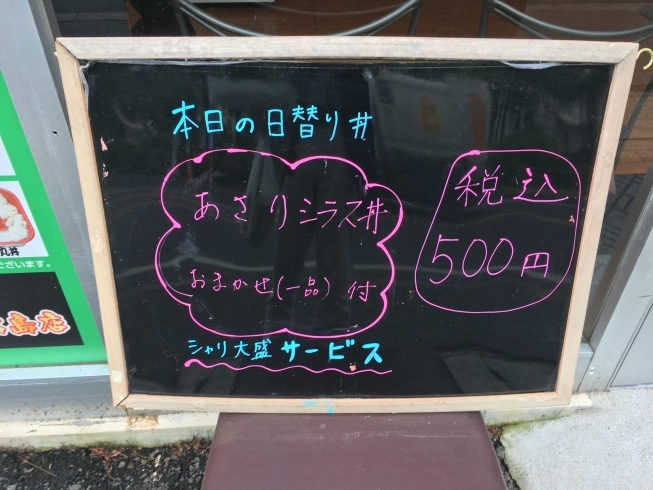 本日の日替り丼
あさりシラス丼
おまかせ(一品) 付
シャリ大盛 サービス
税込
500円
丼
ございます。
島店